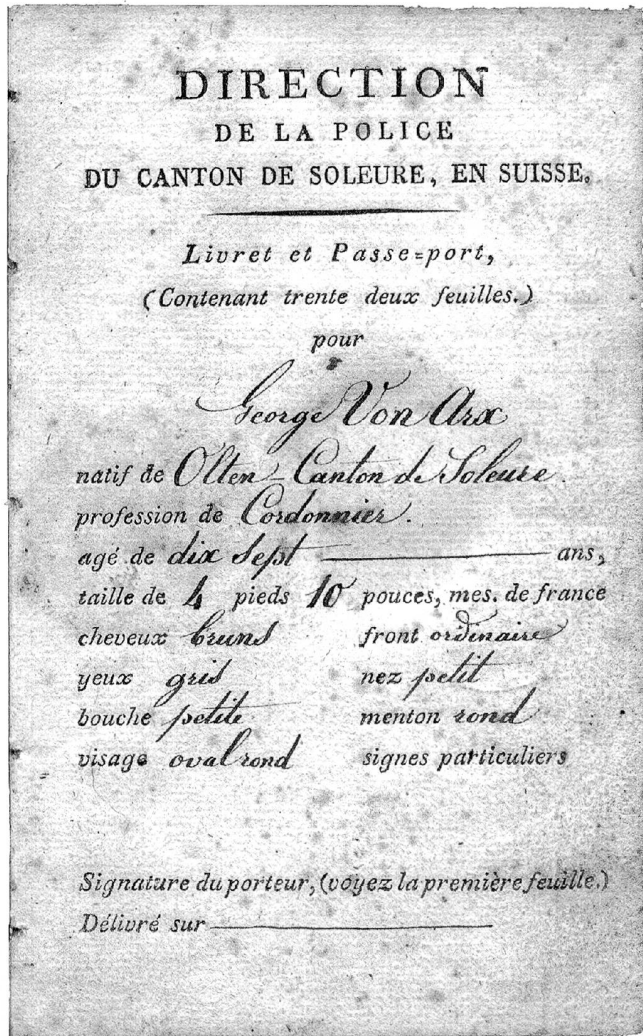 DIRECTION
DE LA POLICE
DU CANTON DE SOLEURE, EN SUISSE.
Livret et Passe=port,
(Contenant trente deux feuilles.)
pour
George Von Arx
natif de Olten - Canton de Soleure.
profession de Cordonnier.
agé de dix sept ans,
taille de 4 pieds 10 pouces, mes. de france
cheveux bruns front ordinaire
yeux gris nez petit
bouche petite menton rond
visage oval rond signes particuliers
Signature du porteur, (voyez la première feuille.)
Délivré sur